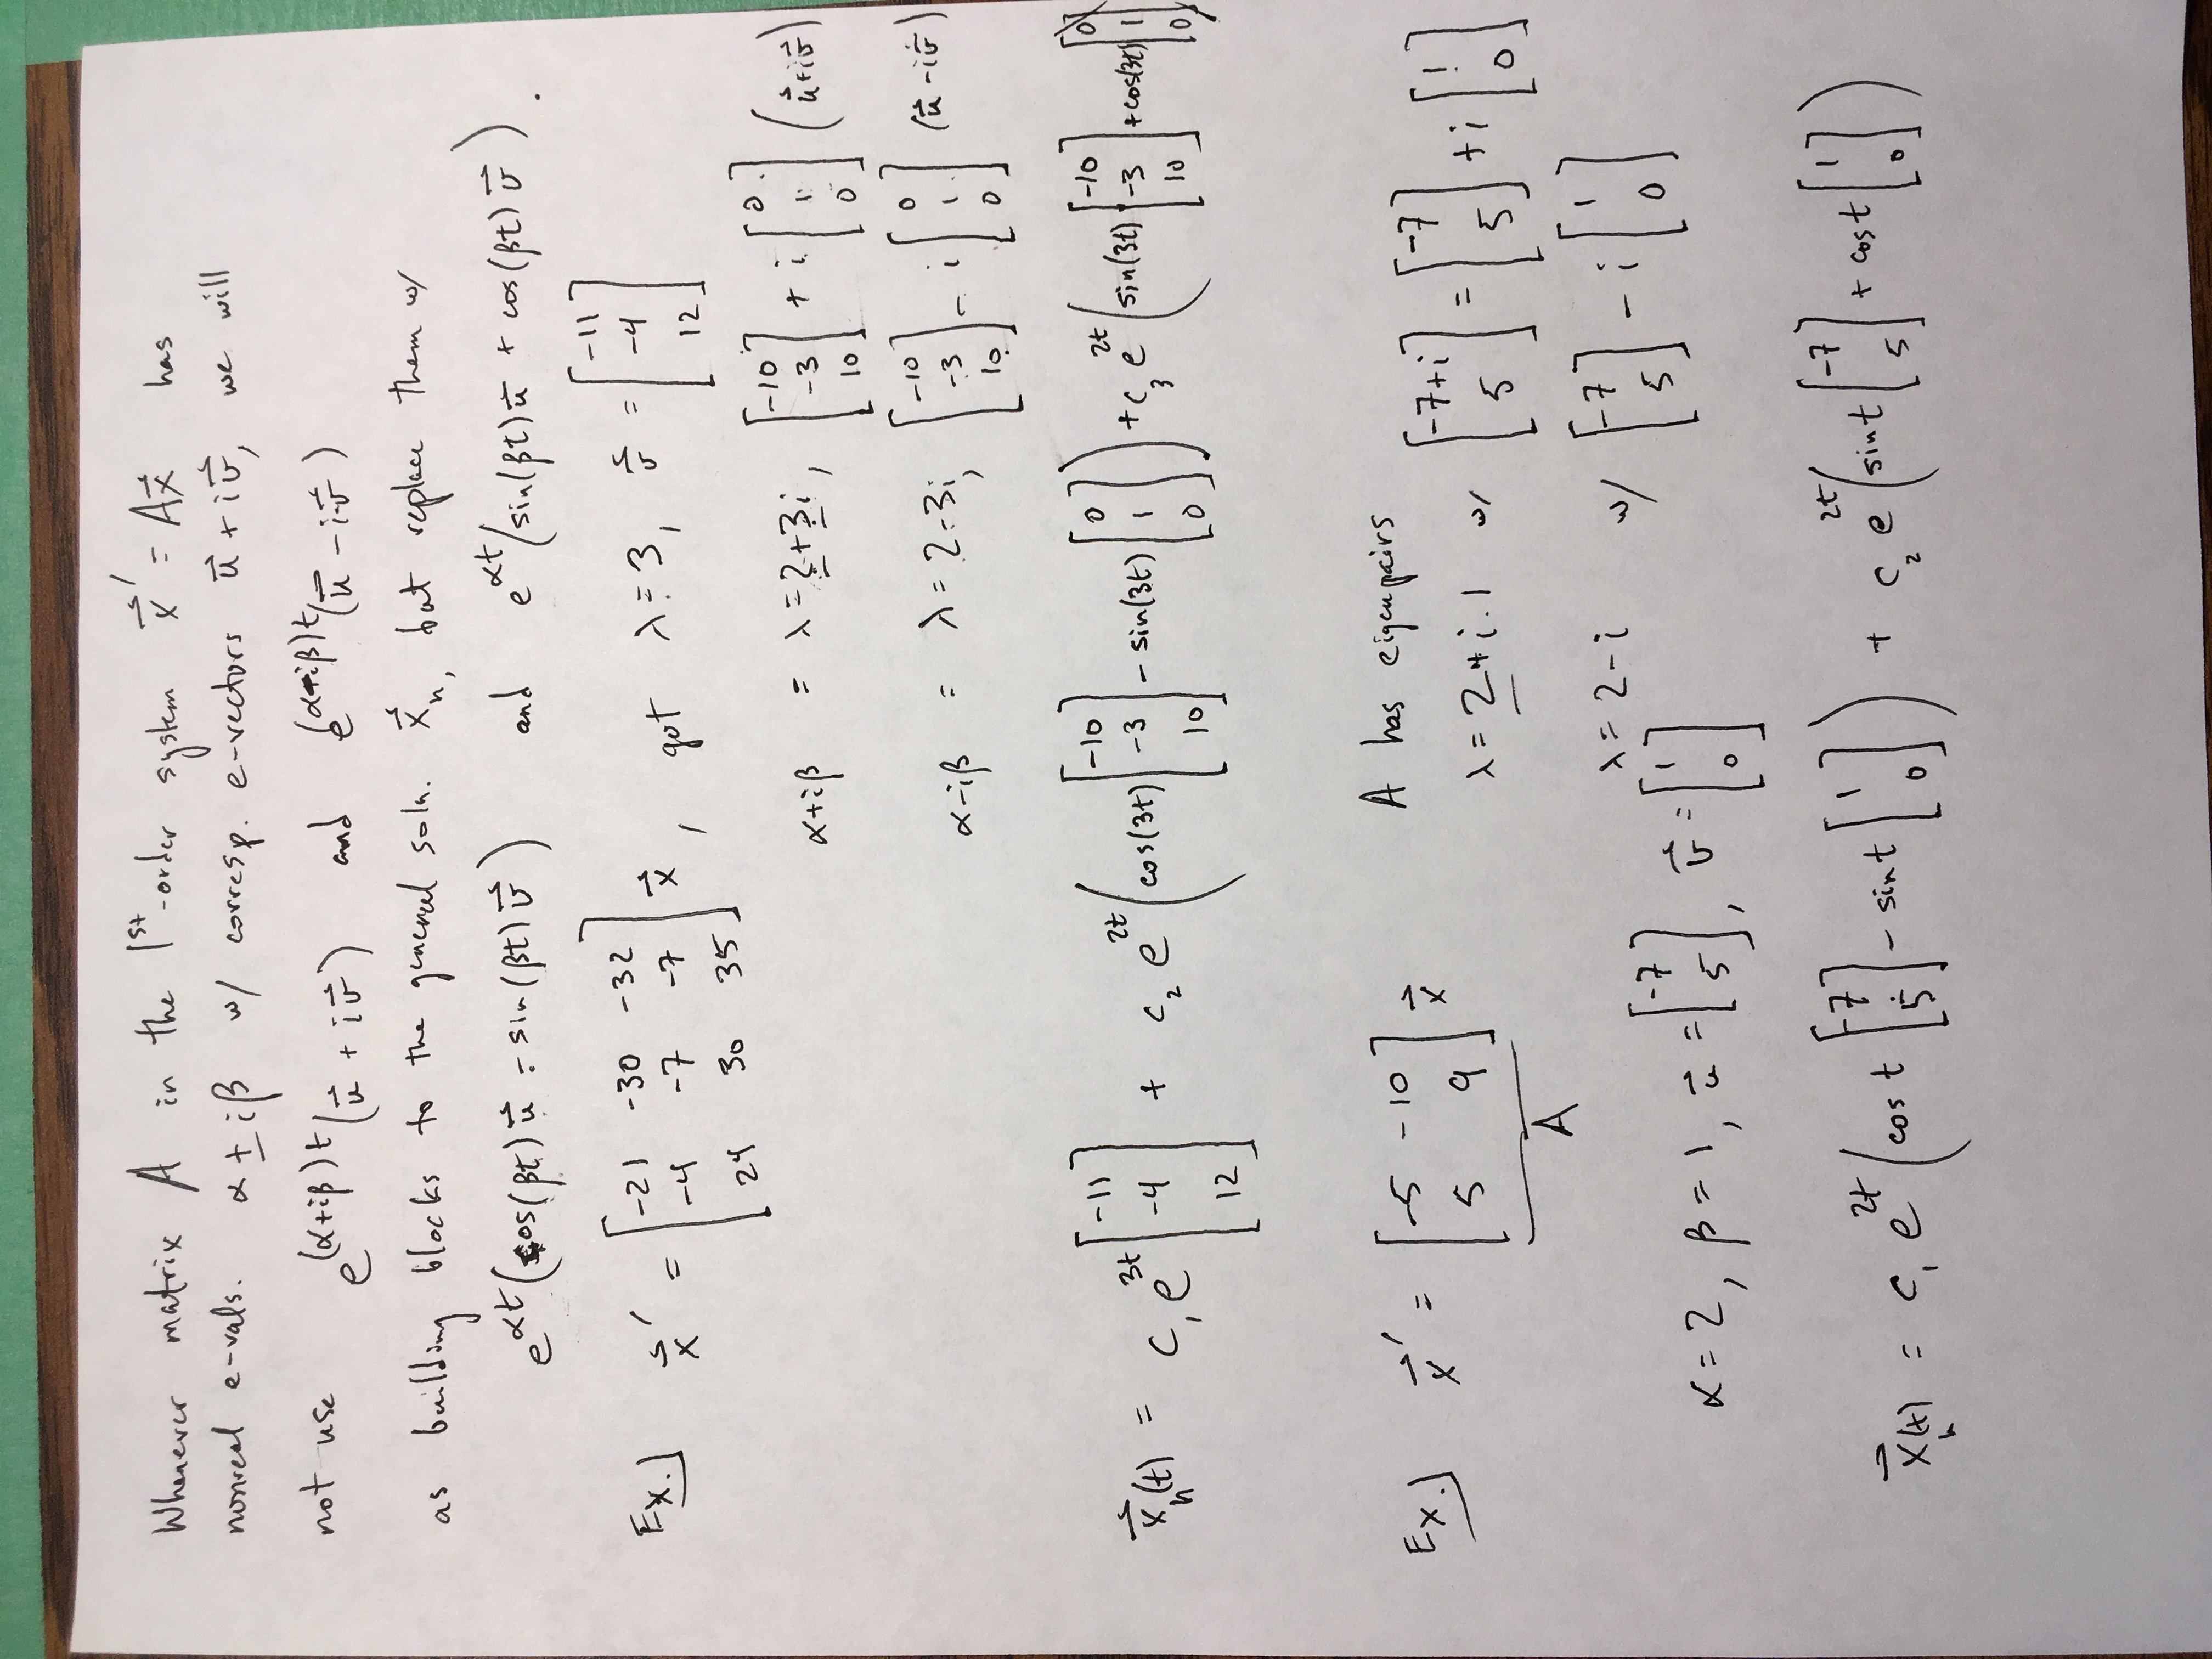 Whenever matrix A in the 1st-order system x⃗' = Ax⃗ has
nonreal e-vals. α ± iβ w/ corresp. e-vectors u⃗ + iv⃗, we will
not use e^{(α+iβ)t}(u⃗ + iv⃗) and e^{(α-iβ)t}(u⃗ - iv⃗)
as building blocks to the general soln. x⃗_h, but replace them w/
e^{αt}(cos(βt)u⃗ - sin(βt)v⃗) and e^{αt}(sin(βt)u⃗ + cos(βt)v⃗).
Ex.] x⃗' = [-21 -30 -32; -4 -7 -7; 24 30 35] x⃗, got λ = 3, v⃗ = [-11; -4; 12]
α+iβ = λ = 2+3i, [-10; -3; 10] + i [0; 1; 0] (u⃗+iv⃗)
α-iβ = λ = 2-3i, [-10; -3; 10] - i [0; 1; 0] (u⃗-iv⃗)
x⃗_h(t) = c₁ e^{3t} [-11; -4; 12] + c₂ e^{2t} (cos(3t) [-10; -3; 10] - sin(3t) [0; 1; 0]) + c₃ e^{2t} (sin(3t) [-10; -3; 10] + cos(3t) [0; 1; 0])
A has eigenpairs
Ex.] x⃗' = [-5 -10; 5 9] x⃗ λ = 2+i·1 w/ [-7+i; 5] = [-7; 5] + i [1; 0]
A
λ = 2-i w/ [-7; 5] - i [1; 0]
α = 2, β = 1, u⃗ = [-7; 5], v⃗ = [1; 0]
x⃗_h(t) = c₁ e^{2t} (cos t [-7; 5] - sin t [1; 0]) + c₂ e^{2t} (sin t [-7; 5] + cos t [1; 0])